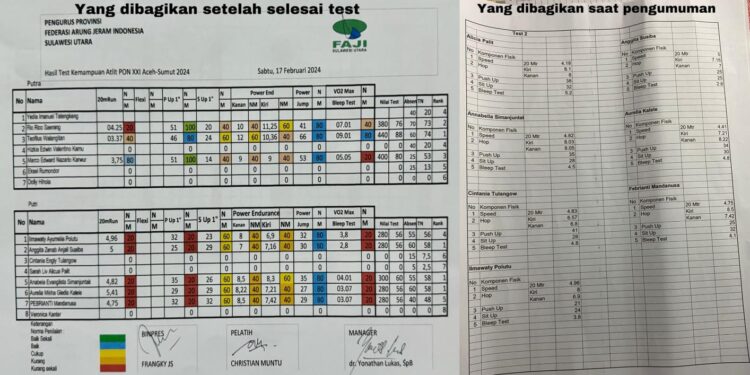 Yang dibagikan setelah selesai test
PENGURUS PROVINSI
FEDERASI ARUNG JERAM INDONESIA
SULAWESI UTARA
FAJI
SULAWESI UTARA
Hasil Test Kemampuan Atlit PON XXI Aceh-Sumut 2024
Sabtu, 17 Februari 2024
Putra
No Nama 20mRun N M Flexi N M P Up 1" N M S Up 1" N M Power End Power Jump N M VO2 Max Bleep Test N M Nilai Test Asben TN Rank
Kanan NM Kiri NM
1 40 20 4
2 04.25 20 51 100 20 40 10 40 11,25 60 41 80 07.01 40 380 76 70 73 2
3 03.37 40 46 80 24 60 12 60 10,36 40 66 80 09.01 80 440 88 60 74 1
4 Hizkia Edwin Valentino Kamu 0 0 0 0 0 0 0
5 3,75 80 51 100 14 40 9 40 9 40 53 80 05.05 20 400 80 25 53 3
6 Eksel Rumondor 0 0 0 0 0 0 0 25 13 5
7 0 0 0 0 0 0 0 0 6
Putri
No Nama 20mRun Flexi P Up 1" S Up 1" Power Endurance Power Jump VO2 Max Bleep Test Nilai Test TN Rank
Kanan NM Kiri NM
1 Imawaty Ayumelia Polutu 4,96 20 32 20 23 60 8 40 6,9 40 32 80 3,8 20 280 56 55 56 4
2 5 20 25 20 29 60 7 40 7,16 40 30 80 2,8 20 280 56 60 58 1
3 Cintania Engly Tulangow 0 0 0 0 0 0 0 15 7,5 6
4 0 0 0 0 0 0 0 5 2,5 7
5 Anabela Evanglista Simanjuntak 4,82 20 35 20 26 60 8,5 40 8.3 40 35 80 04.01 20 300 60 55 58 1
6 5,41 20 25 20 32 60 8,22 40 7,21 40 27 80 03.07 20 280 56 60 58 1
7 FEBRIANTI Mandanusa 4,75 20 29 20 32 60 7,42 40 6,5 40 29 80 03.07 20 280 56 40 48 5
8 Veronica Kanter 0 0 0 0 0 0 0 0 8
Keterangan
Norma Penilaian
Baik Sekali
Baik
Cukup
Kurang
Kurang sekali
BINPRES
FRANGKY JS
PELATIH
CHRISTIAN MUNTU
MANAGER
dr. Yonathan Lukas, SpB
Yang dibagikan saat pengumuman
Test 2
Alicia Palit
No Komponen Fisik
1 Speed 20 Mtr 4.19
2 Hop Kiri 6.1
Kanan 6
3 Push Up 36
4 Sit Up 32
5 Bleep Test 5.2
Anggita Susiba
No Komponen Fisik
1 Speed 20 Mtr 5
2 Hop Kiri 7.16
Kanan 7
3 Push Up 25
4 Sit Up 29
5 Bleep Test 2.8
Annabella Simanjuntal
No Komponen Fisik
1 Speed 20 Mtr 4.82
2 Hop Kiri 8.03
Kanan 8.05
3 Push Up 35
4 Sit Up 26
5 Bleep Test
Aurelia Kalete
No Komponen Fisik
1 Speed 20 Mtr 5.41
2 Hop Kiri 7.21
Kanan 8.22
3 Push Up 25
4 Sit Up 32
5 Bleep Test
Cintania Tulangow
No Komponen Fisik
1 Speed 20 Mtr 4.83
2 Hop Kiri 6.57
Kanan 6.8
3 Push Up 41
4 Sit Up 28
5 Bleep Test 4.5
Febrianti Mandanusa
No Komponen Fisik
1 Speed 20 Mtr 4.75
2 Hop Kiri 6.5
Kanan 7.42
3 Push Up 29
4 Sit Up
5 Bleep Test
Imawaty Polutu
No Komponen Fisik
1 Speed 20 Mtr 4.96
2 Hop Kiri 8
Kanan 6.9
3 Push Up 21
4 Sit Up 24
5 Bleep Test 3.8